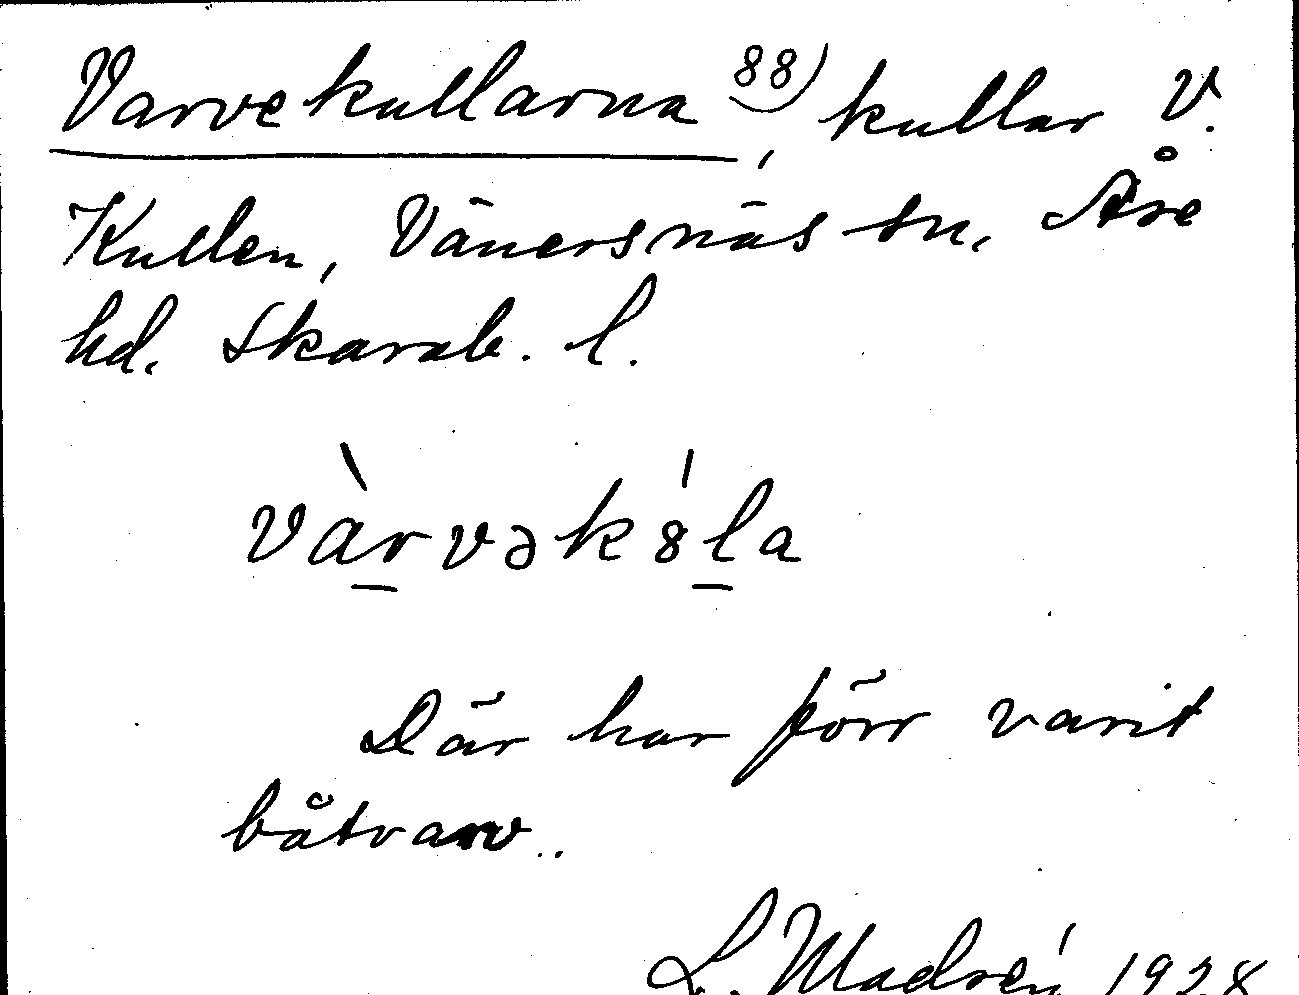 Varvekullarna 88), kullar V.
Kullen, Vänersnäs sn, Åse
hd. Skarab. l.
vàrvəkȣ́la
Där har förr varit
båtvarv.
L. Modrén 1928